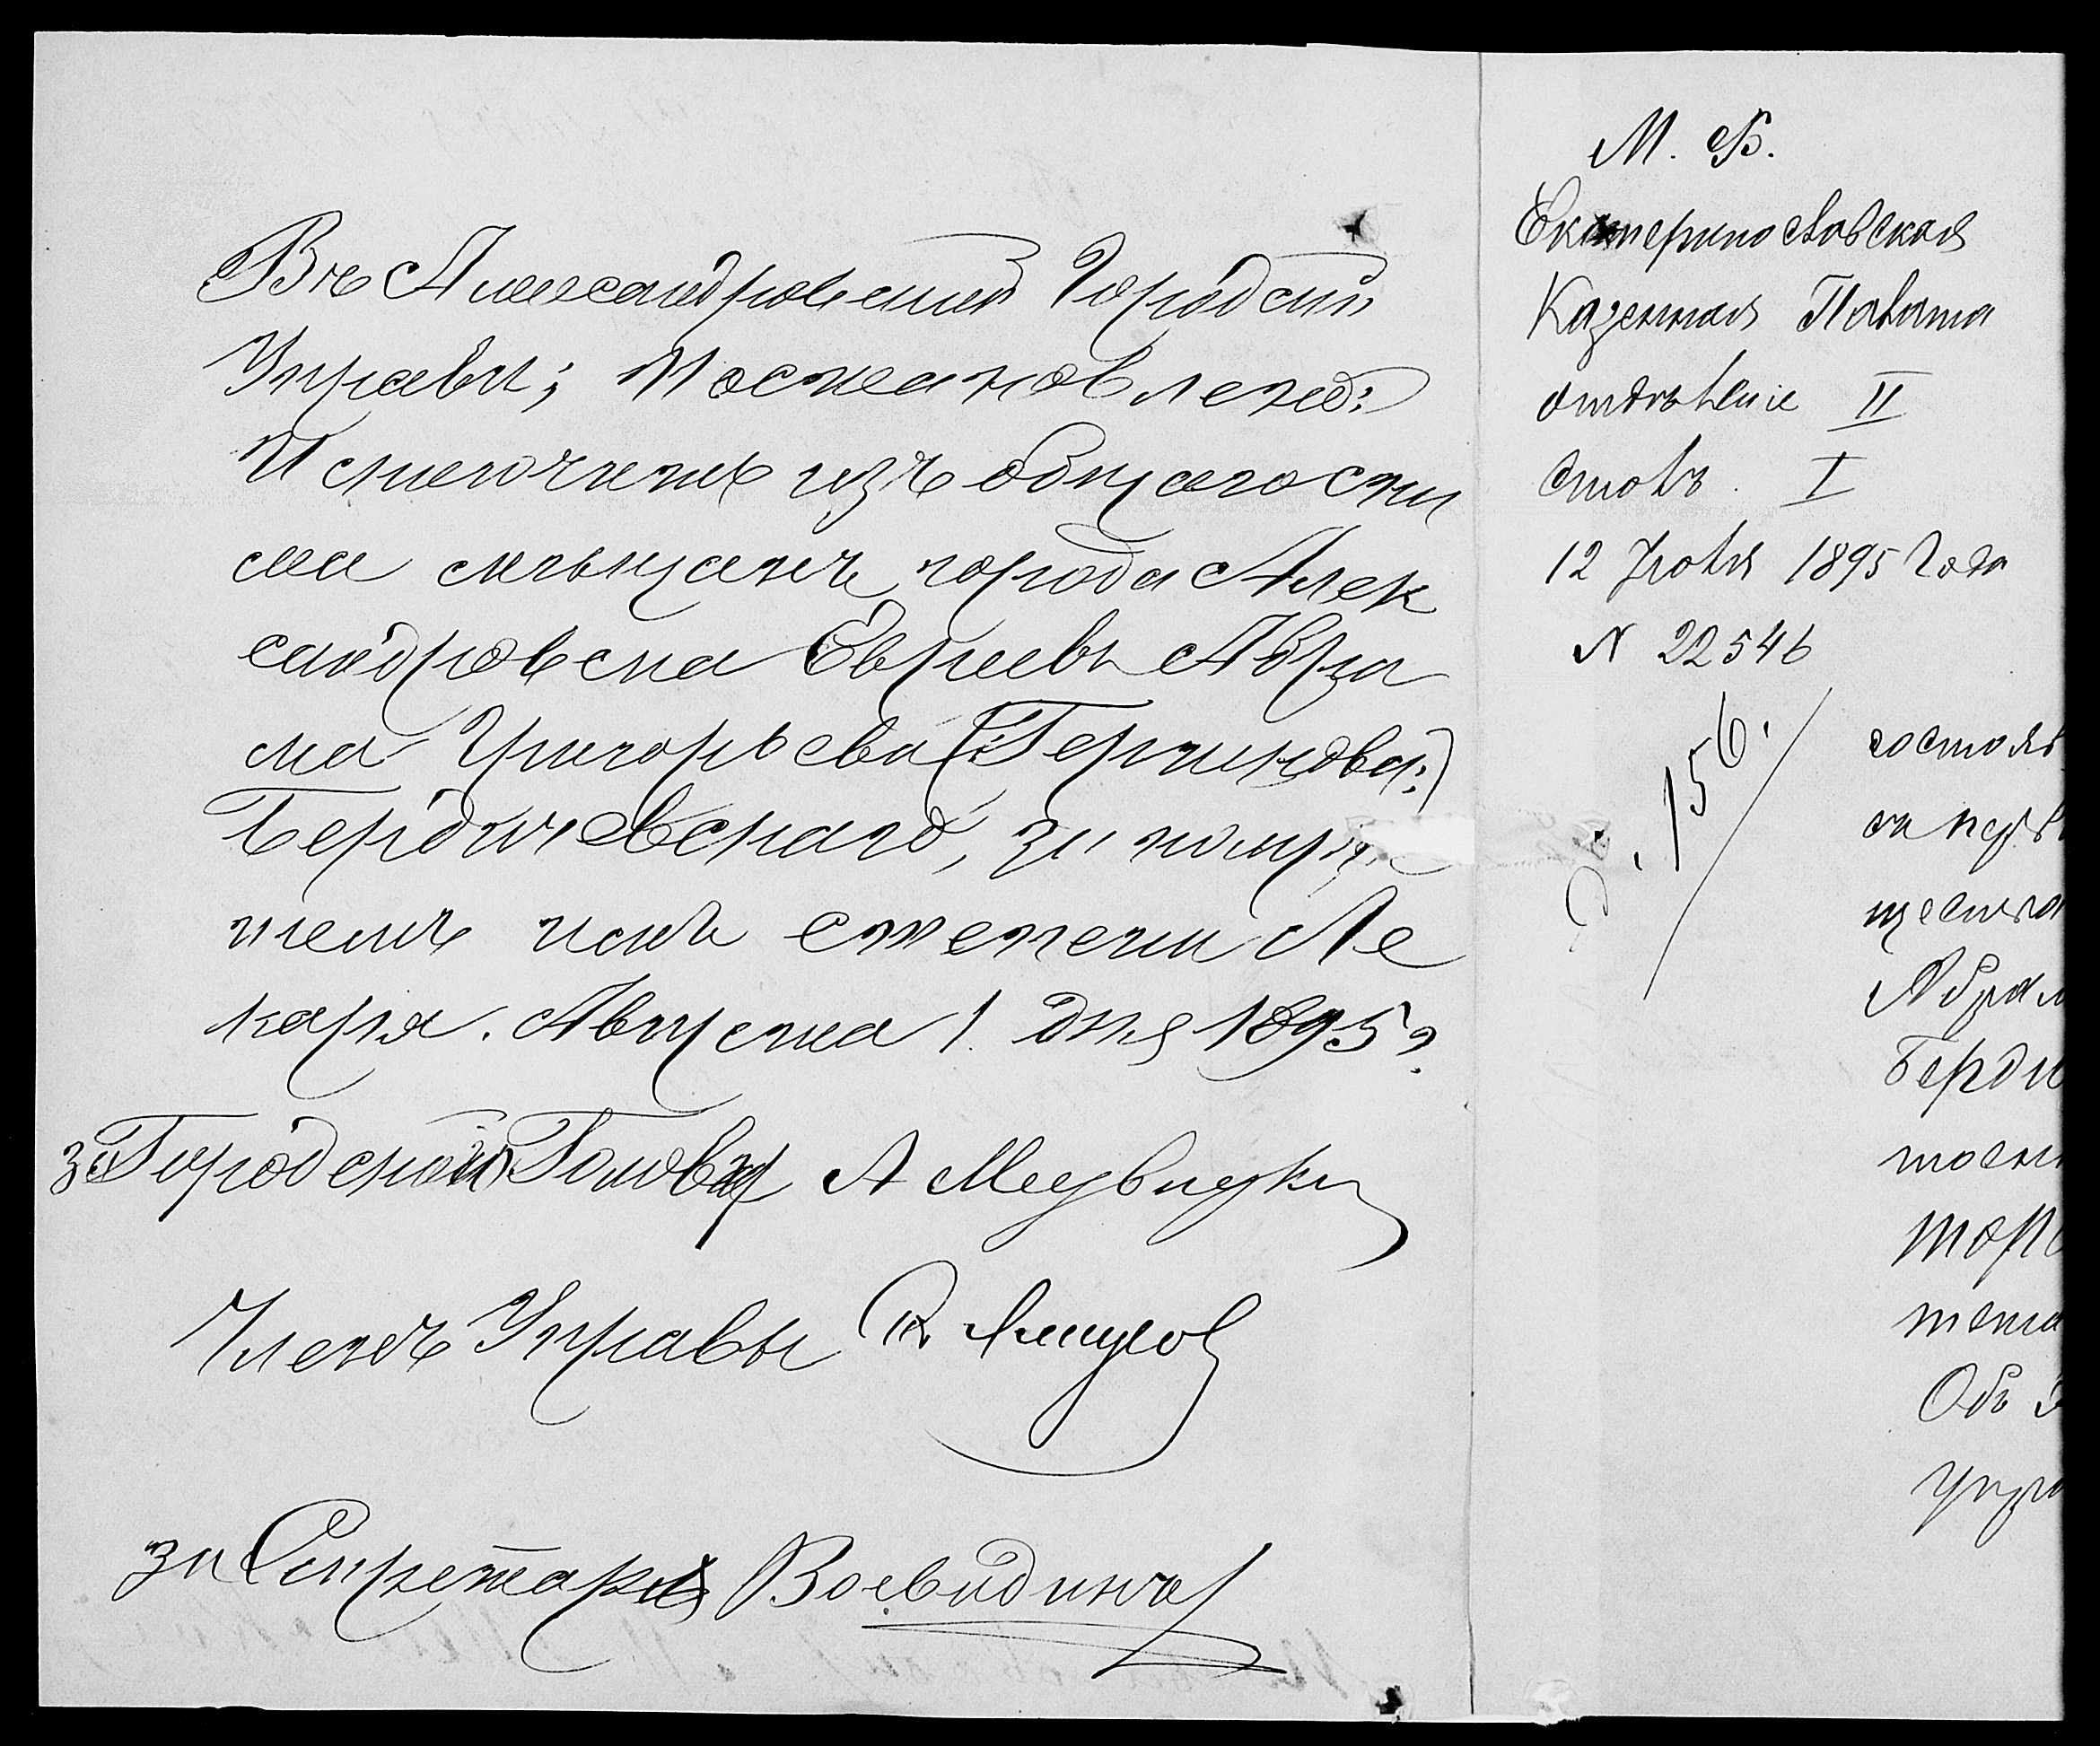 Въ Александровской Городской
Управѣ; Постановлено:
Исключить изъ общаго спи
ска мѣщанъ города Алек
сандровска Еврея Абра
ма Григорьева (: Гершкова :)
Бердичевскаго, за
имъ степени Ле
каря. Августа 1 дня 1895 г.
за Городской Голова А
Членъ Управы
за Секретаря Воеводинъ
М. Ф.
Екатеринославская
Казенная Палата
отдѣленіе II
столъ I
12 Іюля 1895 Года
N 22546
156.
состояв
щества
Абрам
Берди
Объ э
упра